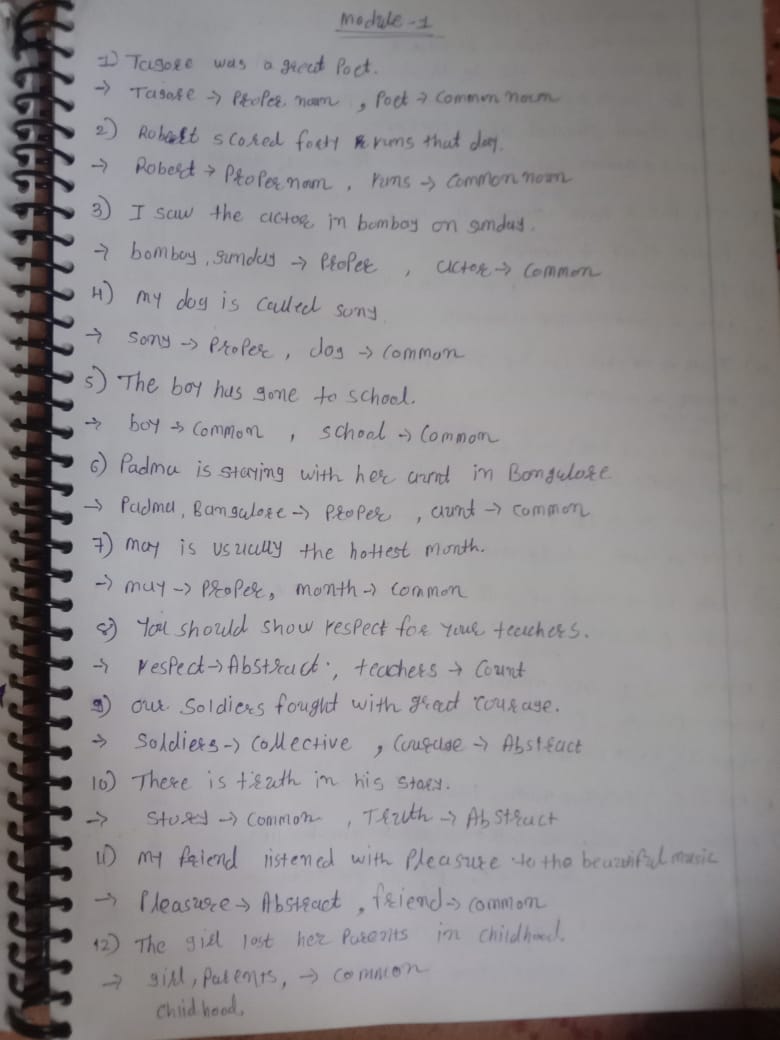 Module-1
1) Tagore was a great Poet.
→ Tagore → Proper noun , Poet → Common noun
2) Robert scored forty runs that day.
→ Robert → Proper noun , runs → Common noun
3) I saw the actor in bombay on sunday.
→ bombay, sunday → Proper , actor → Common
4) my dog is called sony
→ sony → Proper , dog → Common
5) The boy has gone to school.
→ boy → Common , school → Common
6) Padma is staying with her aunt in Bangalore
→ Padma, Bangalore → Proper , aunt → common
7) may is usually the hottest month.
→ may → Proper, month → common
8) You should show respect for your teachers.
→ respect → Abstract , teachers → Count
9) Our Soldiers fought with great courage.
→ Soldiers → Collective , Courage → Abstract
10) There is truth in his story.
→ Story → Common , Truth → Abstract
11) my friend listened with Pleasure to the beautiful music
→ Pleasure → Abstract , friend → common
12) The girl lost her Parents in childhood.
→ girl, Parents, → common
childhood.